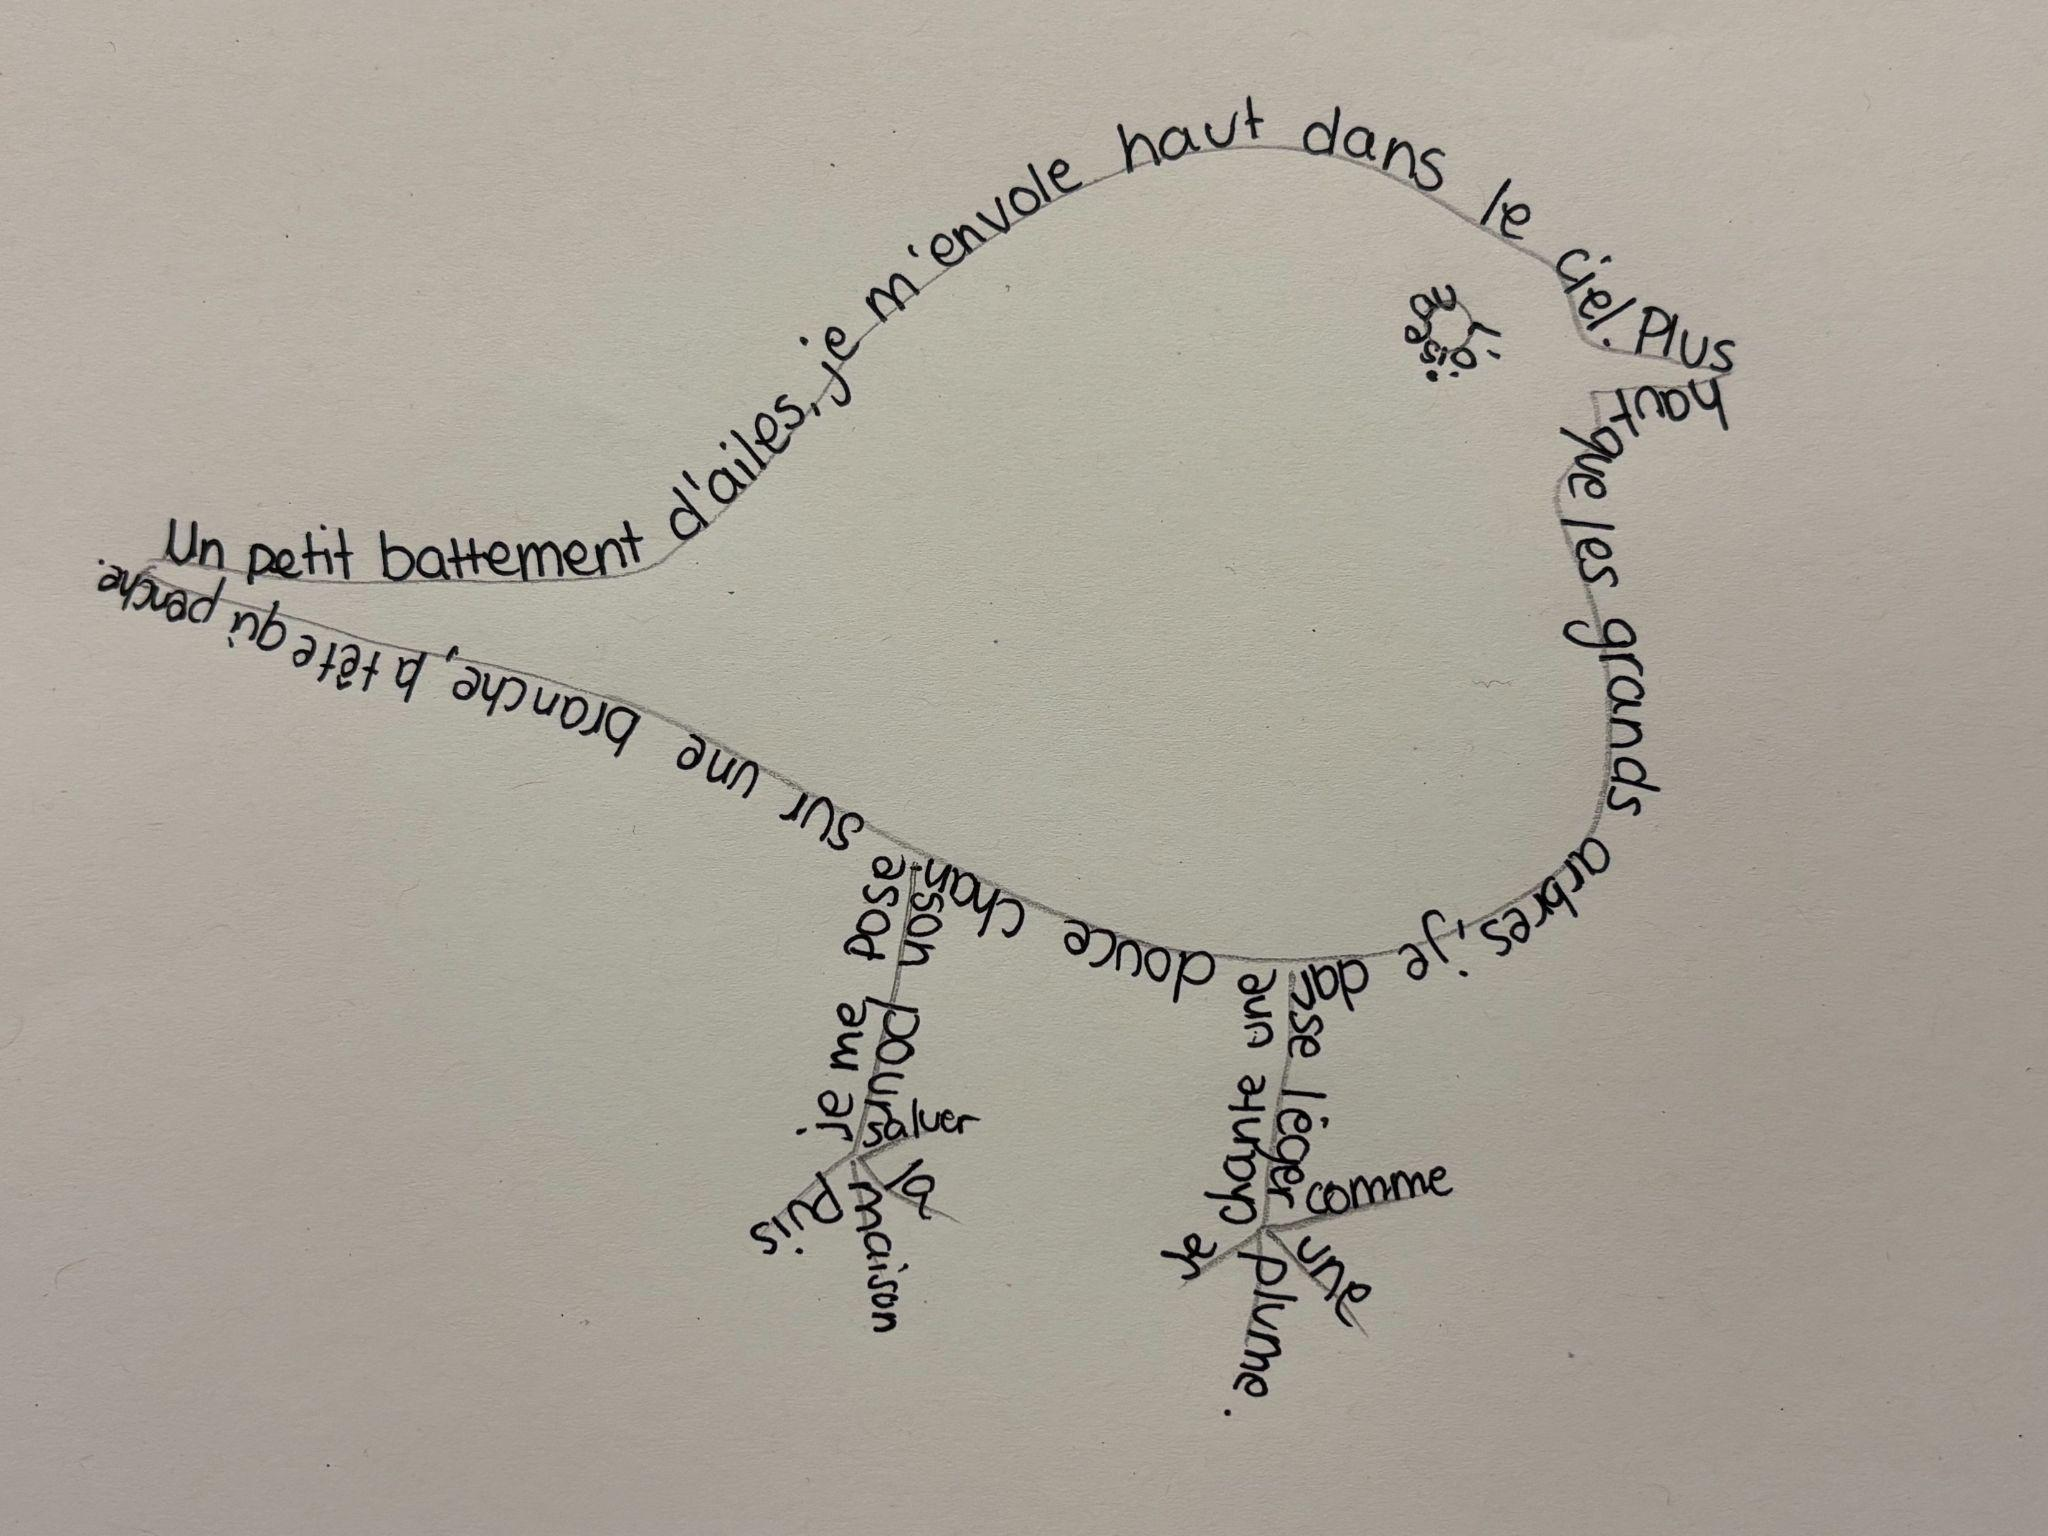 L'oiseau
Un petit battement d'ailes, je m'envole haut dans le ciel. Plus haut que les grands arbres, je danse léger comme une plume. Je chante une douce chanson pour saluer la maison puis je me pose sur une branche, la tête qui penche.